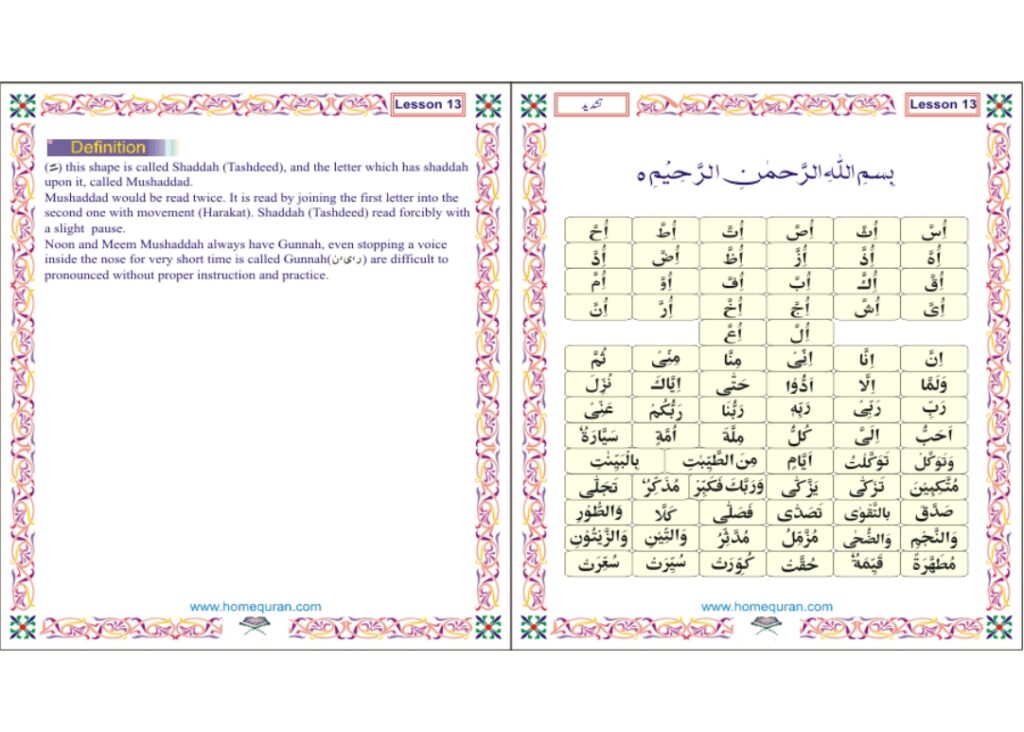 Lesson 13
Definition
(ـّ) this shape is called Shaddah (Tashdeed), and the letter which has shaddah
upon it, called Mushaddad.
Mushaddad would be read twice. It is read by joining the first letter into the
second one with movement (Harakat). Shaddah (Tashdeed) read forcibly with
a slight pause.
Noon and Meem Mushaddah always have Gunnah, even stopping a voice
inside the nose for very short time is called Gunnah( ) are difficult to
pronounced without proper instruction and practice.
www.homequran.com
تشدید
Lesson 13
بِسْمِ اللّٰهِ الرَّحْمٰنِ الرَّحِيْمِ ه
اُسَّ اُثَّ اُصَّ اُتَّ اُطَّ اُحَّ
اُهَّ اُذَّ اُزَّ اُظَّ اُضَّ اُدَّ
اُقَّ اُكَّ اُبَّ اُفَّ اُوَّ اُمَّ
اُىَّ اُشَّ اُجَّ اُخَّ اُرَّ اُنَّ
اُلَّ اُعَّ
اِنَّ اِنَّا اِنِّىْ مِنَّا مِنِّىْ ثُمَّ
وَلَمَّا اِلَّا اَدُّوْا حَتّٰى اِيَّاكَ نُزِّلَ
رَبِّ رَبِّىْ رَبِّهٖ رَبُّنَا رَبُّكُمْ عَنِّىْ
اَحَبُّ اِلَىَّ كُلُّ مِلَّةَ اُمَّةٍ سَيَّارَةٌ
وَتَوَكَّلْ تَوَكَّلْتُ اَيَّامٍ مِنَ الطَّيِّبٰتِ بِالْبَيِّنٰتِ
مُتَّكِـِٕيْنَ تَزَكّٰى يَزَّكّٰى وَرَبَّكَ فَكَبِّرْ مُذَكِّرٌ تَجَلّٰى
صَدَّقَ بِالتَّقْوٰى تَصَدّٰى فَصَلّٰى كَلَّا وَالطُّوْرِ
وَالنَّجْمِ وَالضُّحٰى مُزَّمِّلُ مُدَّثِّرُ وَالتِّيْنِ وَالزَّيْتُوْنِ
مُطَهَّرَةً قَيِّمَةٌ حُقَّتْ كُوِّرَتْ سُيِّرَتْ سُعِّرَتْ
www.homequran.com